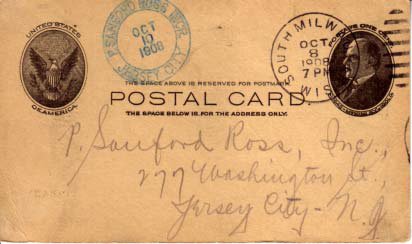 UNITED STATES
OF AMERICA
P. SANFORD ROSS, INC'R.
OCT
10
1908
JERSEY CITY
SOUTH MILW
OCT
8
1908
7 PM
WIS
SERIES ONE CENT
THE SPACE ABOVE IS RESERVED FOR POSTMARK.
POSTAL CARD.
THE SPACE BELOW IS FOR THE ADDRESS ONLY.
P. Sanford Ross, Inc.,
277 Washington St.,
Jersey City - N.J.